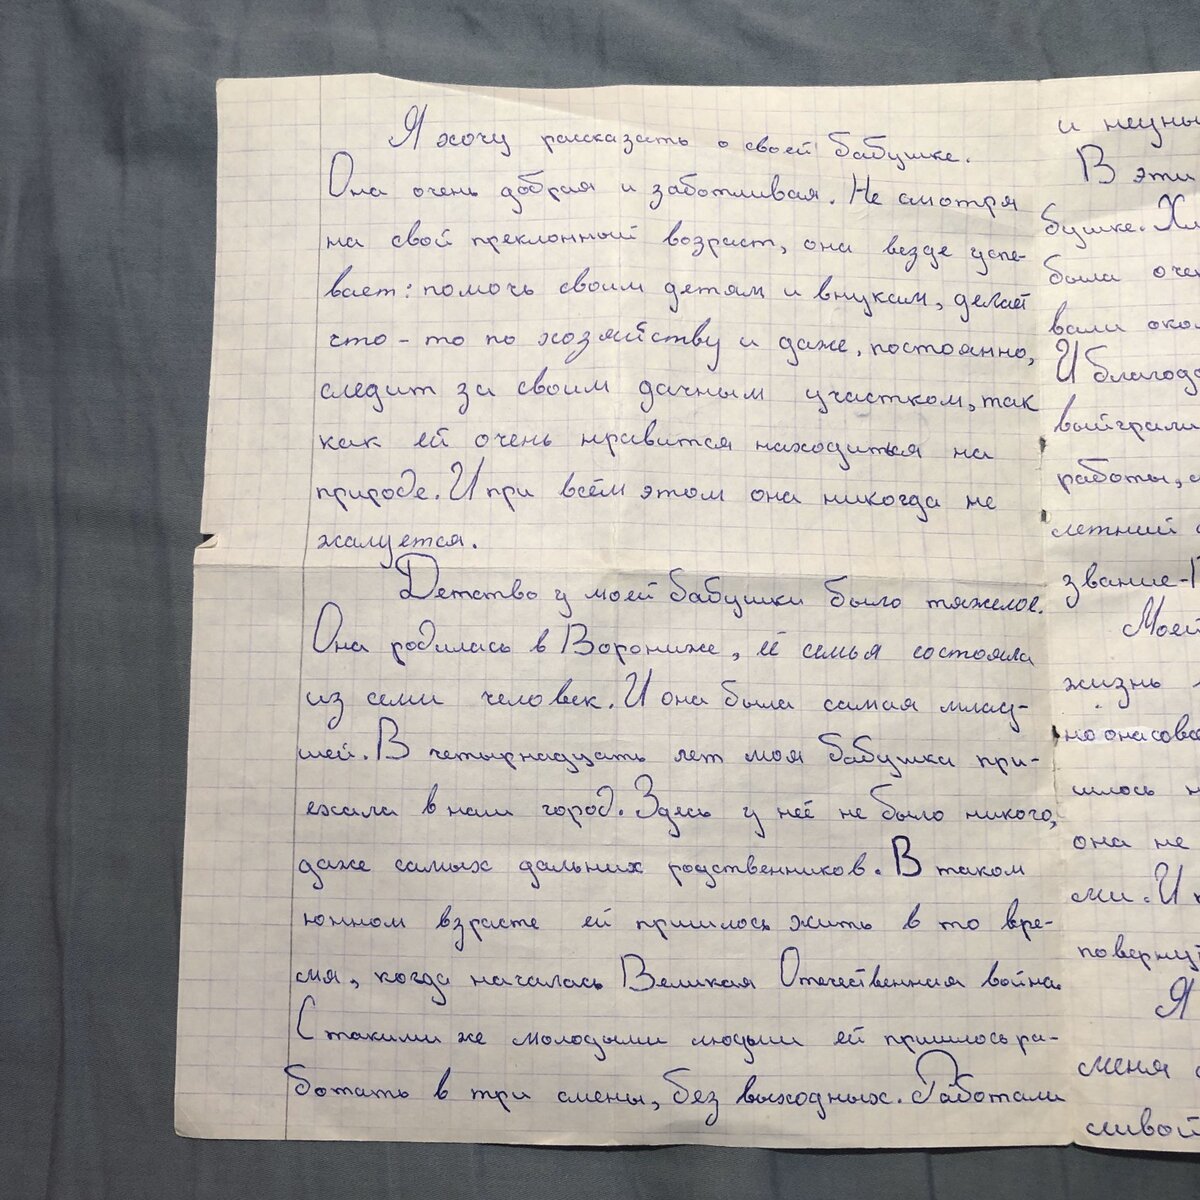 Я хочу рассказать о своей бабушке.
Она очень добрая и заботливая. Не смотря
на свой преклонный возраст, она везде успе-
вает: помочь своим детям и внукам, делает
что-то по хозяйству и даже, постоянно,
следит за своим дачным участком, так
как ей очень нравится находиться на
природе. И при всём этом она никогда не
жалуется.
Детство у моей бабушки было тяжелое.
Она родилась вВорониже, её семья состояла
из семи человек. И она была самая млад-
шей. В четырнадцать лет моя бабушка при-
ехала в наш город. Здесь у неё не было никого,
даже самых дальних родственников. В таком
юнном взрасте ей пришлось жить в то вре-
мя, когда началась Великая Отечественная война.
С такими же молодыми людьми ей пришлось ра-
ботать в три смены, без выходных. Работали
и неуны
В эти
бушке. Хл
была очен
вали окол
И благода
выиграли
работы, а
летний
звание-
Моей
жизнь
но она совсе
шлось н
она не
ми. И
повернут
Я
меня
сливой